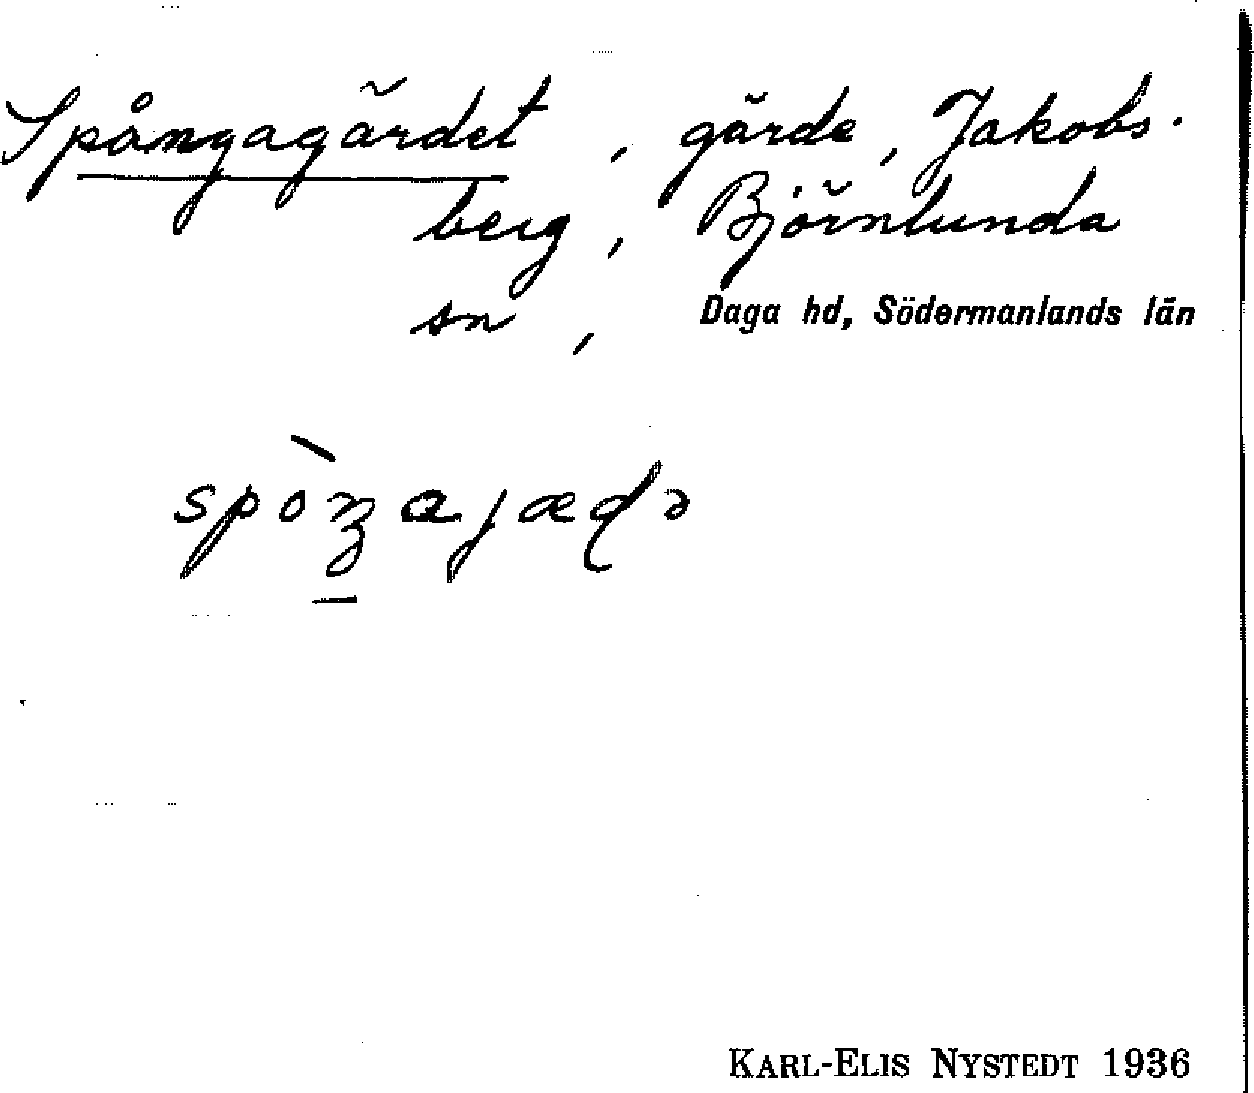 Spångagärdet, gärde, Jakobs-
berg, Björnlunda
sn, Daga hd, Södermanlands län
spòŋajæɖə
KARL-ELIS NYSTEDT 1936